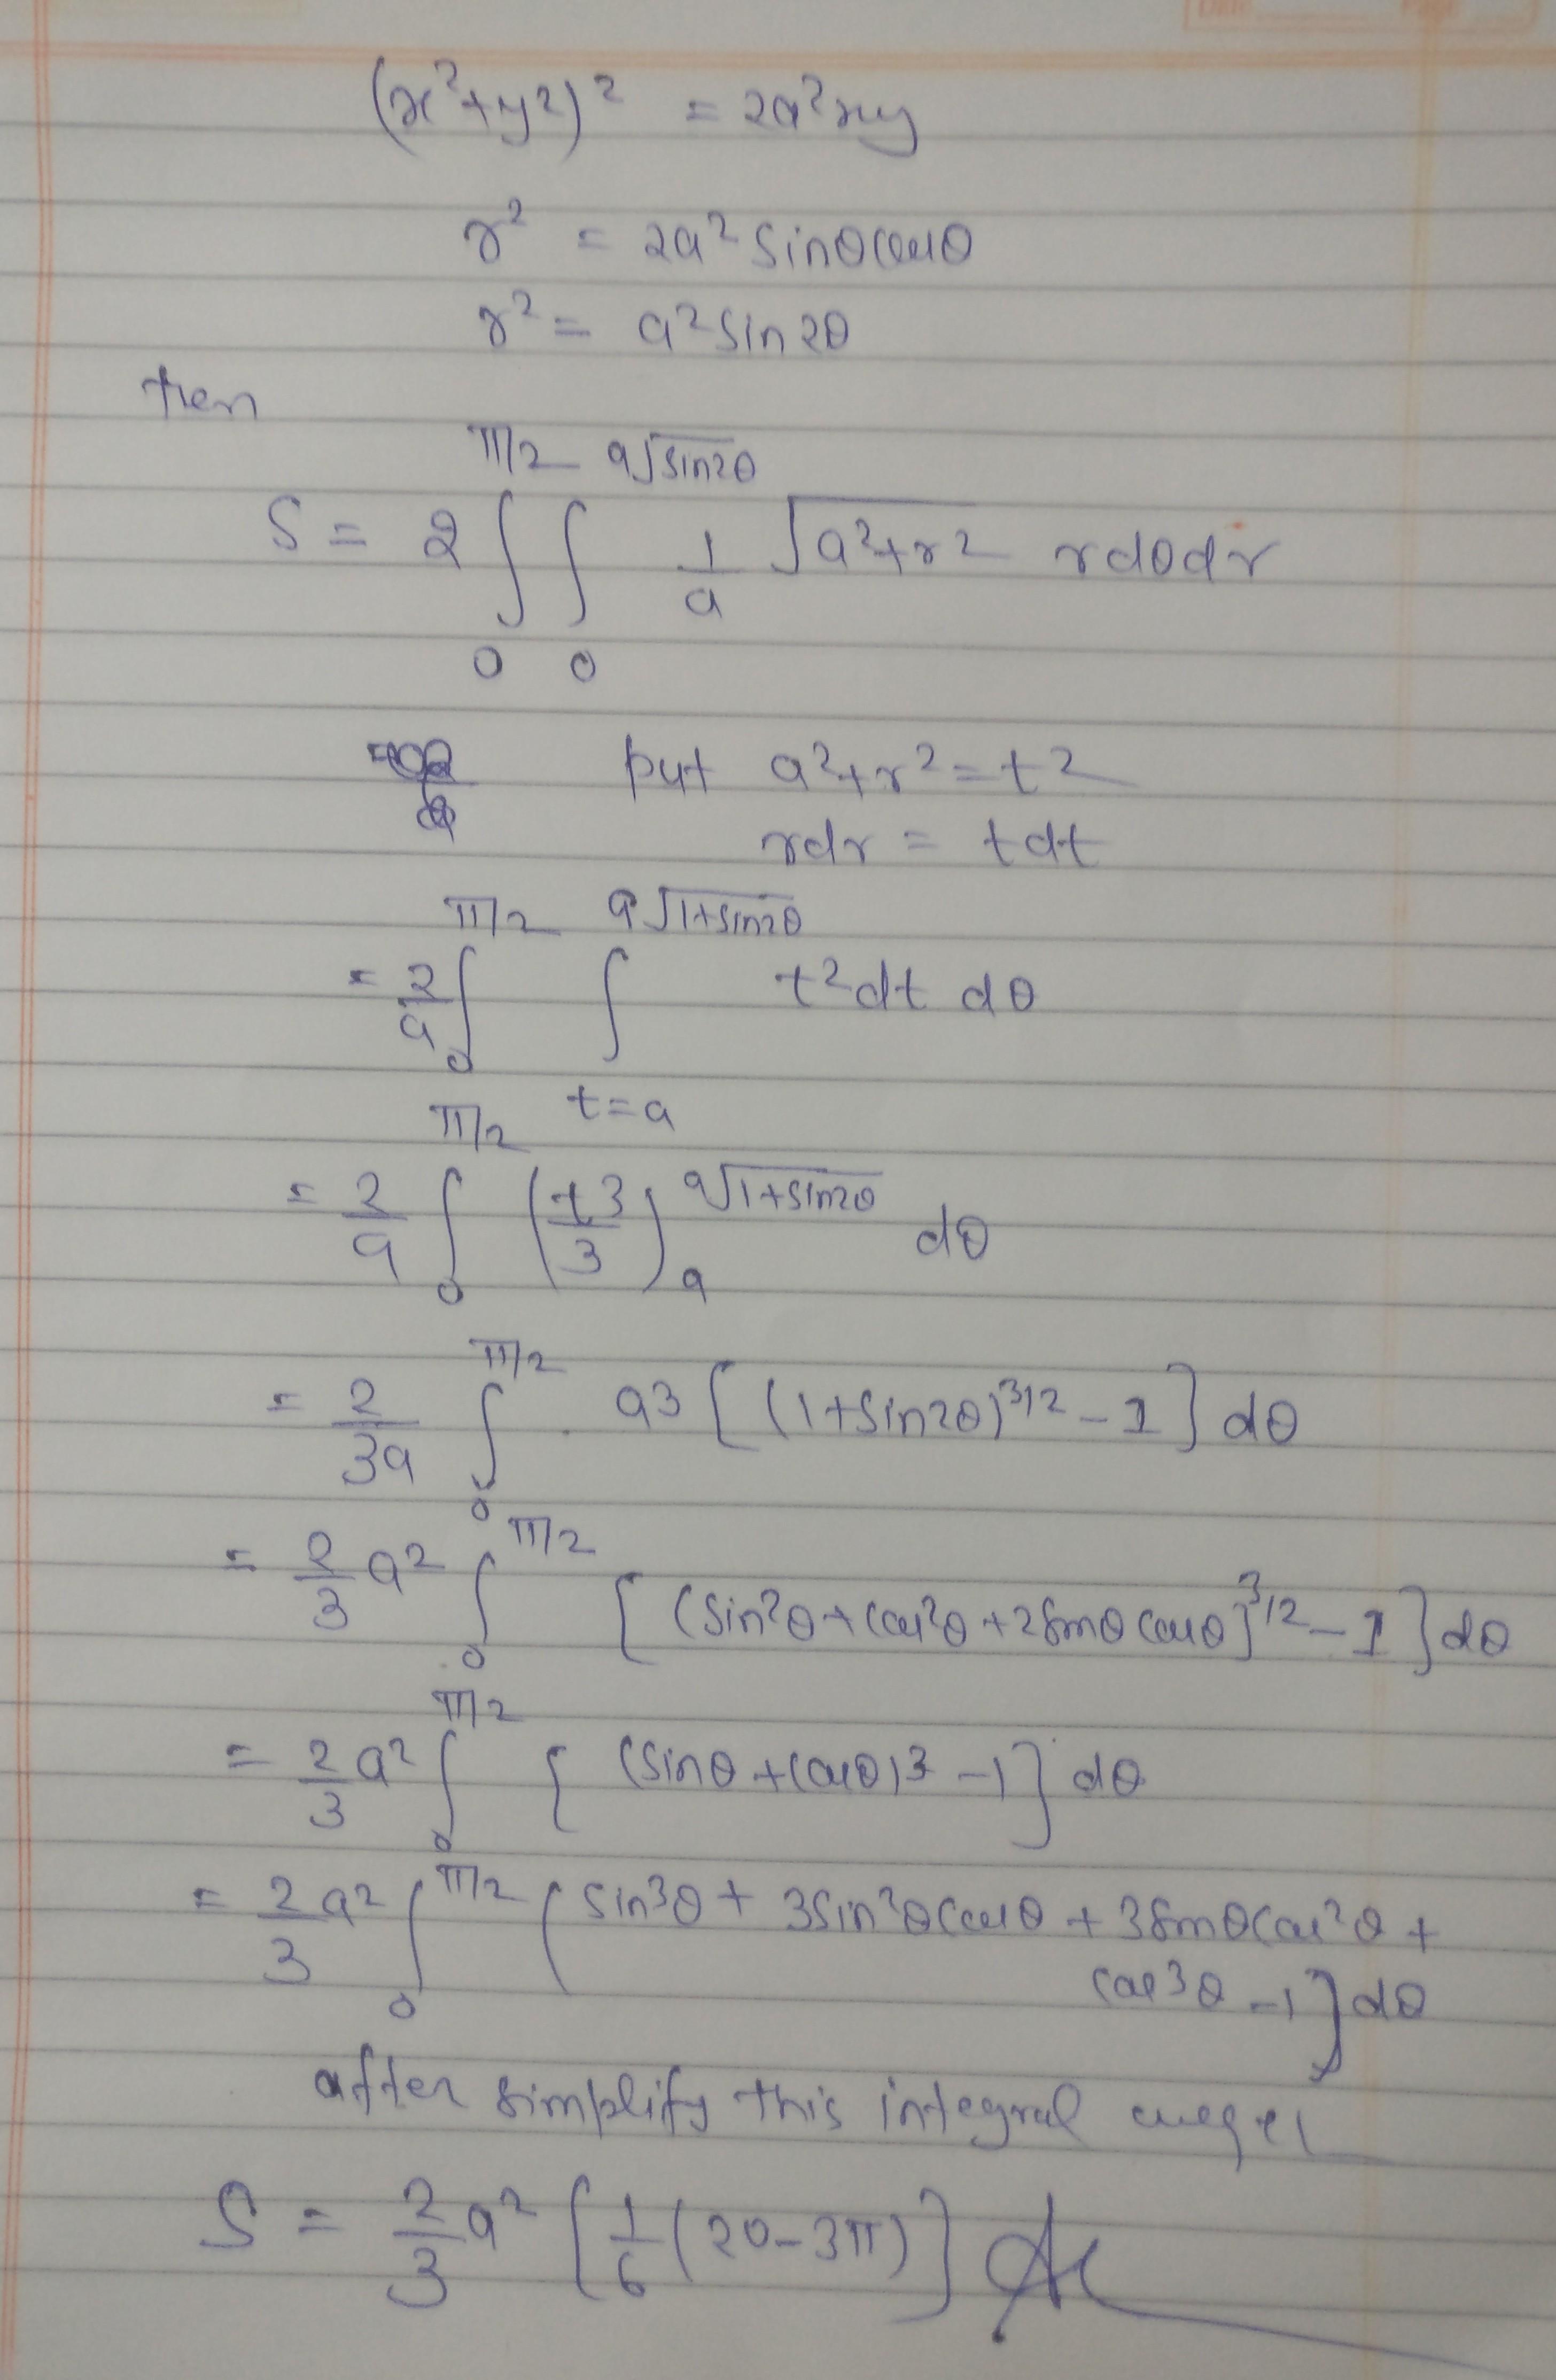 Date Page
(x²+y²)² = 2a²xy
r² = 2a² sinθcosθ
r² = a² sin2θ
then
S = 2 ∫₀^{π/2} ∫₀^{a√sin2θ} 1/a √(a²+r²) r dθ dr
put a²+r² = t²
rdr = tdt
= 2/a ∫₀^{π/2} ∫_{t=a}^{a√(1+sin2θ)} t² dt dθ
= 2/a ∫₀^{π/2} (t³/3)ₐ^{a√(1+sin2θ)} dθ
= 2/3a ∫₀^{π/2} a³ [(1+sin2θ)^{3/2} - 1] dθ
= 2/3 a² ∫₀^{π/2} [(sin²θ+cos²θ+2sinθcosθ)^{3/2} - 1] dθ
= 2/3 a² ∫₀^{π/2} {(sinθ+cosθ)³ - 1} dθ
= 2/3 a² ∫₀^{π/2} (sin³θ + 3sin²θcosθ + 3sinθcos²θ +
cos³θ - 1} dθ
after simplify this integral we get
S = 2/3 a² [1/6 (20-3π)]